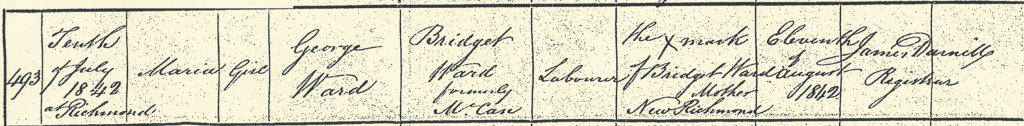 493
Tenth
of July
1842
at Richmond
Maria
Girl
George
Ward
Bridget
Ward
formerly
McCan
Labourer
the X mark
of Bridget Ward
Mother
New Richmond
Eleventh
of
August
1842
James Darnill
Registrar